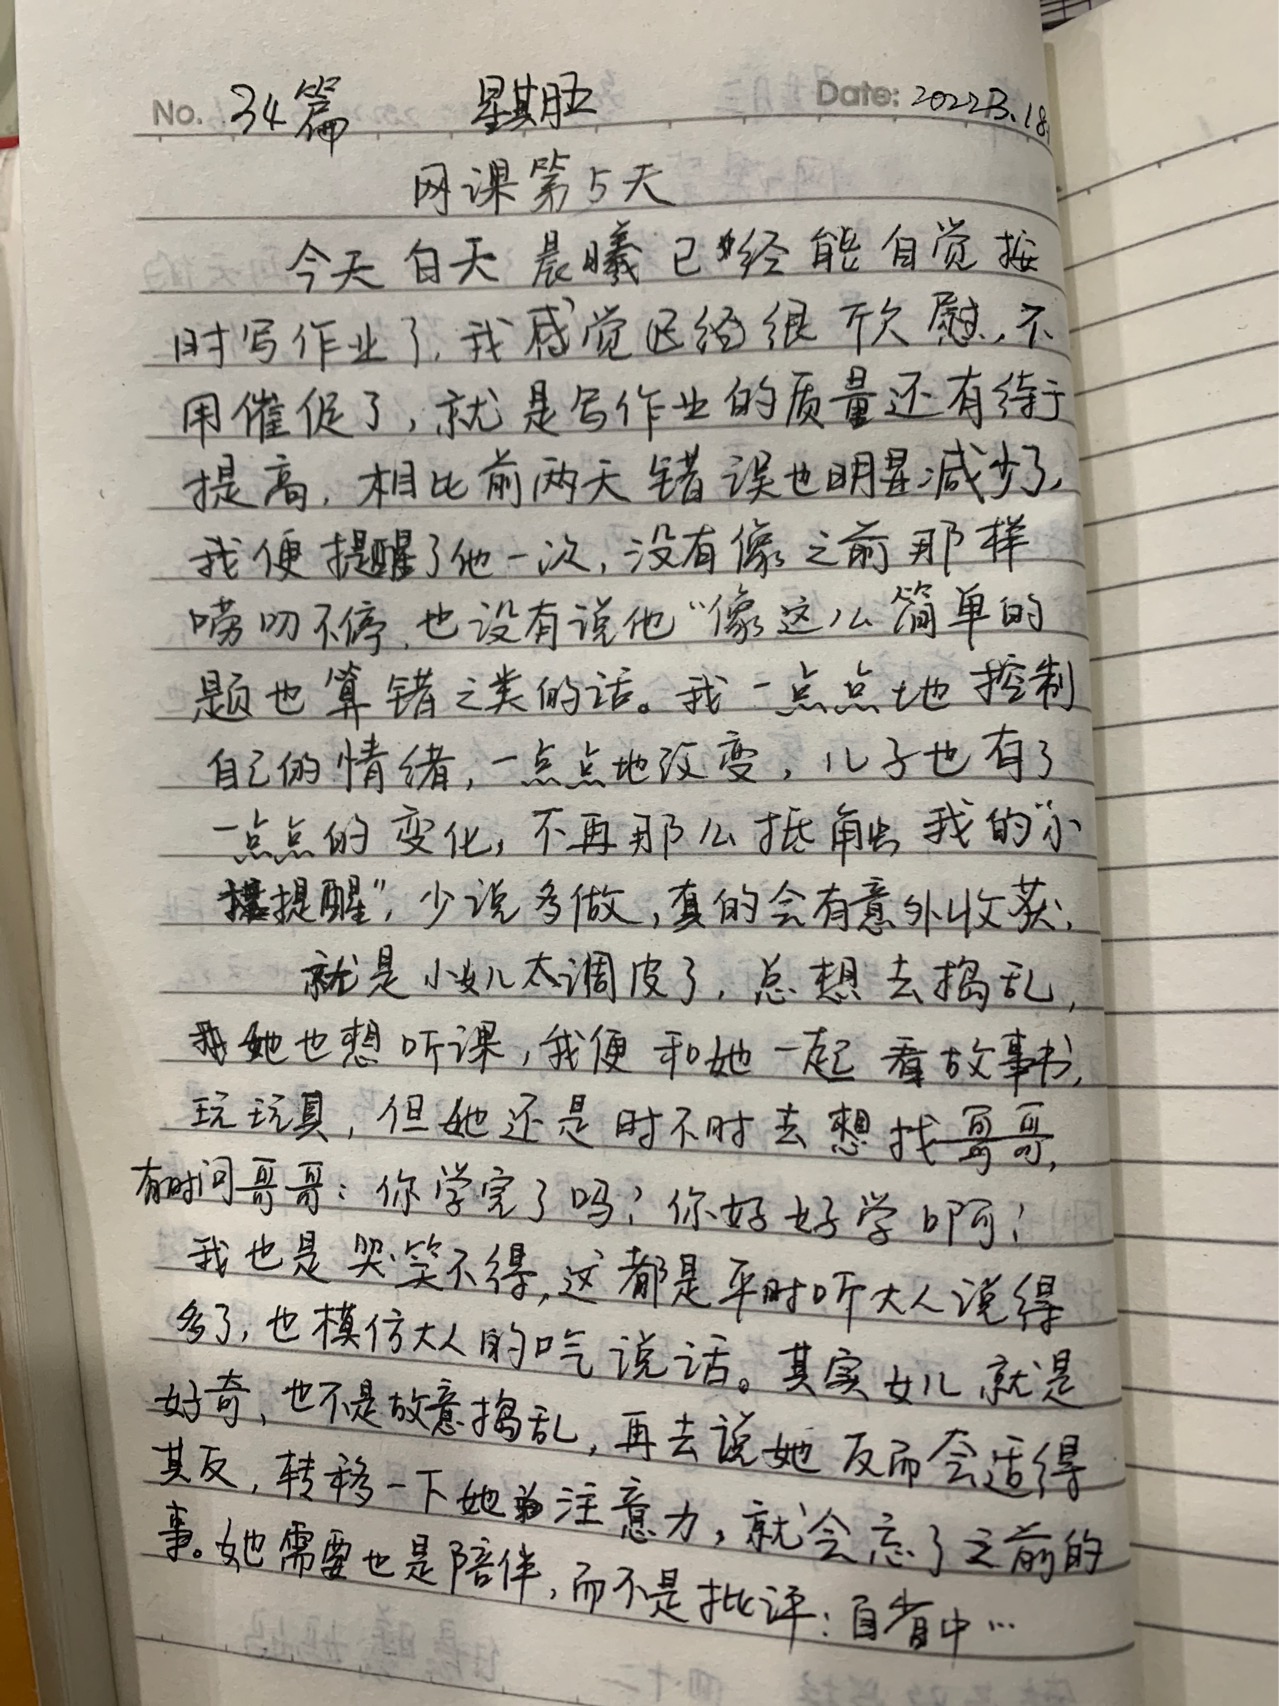 No. 34篇 星期五 Date: 2022.3.18
网课第5天
今天白天晨曦已经能自觉按
时写作业了,我感觉已经很欣慰,不
用催促了,就是写作业的质量还有待于
提高,相比前两天错误也明显减少了,
我便提醒了他一次,没有像之前那样
唠叨不停,也没有说他“像这么简单的
题也算错之类的话。我一点点地控制
自己的情绪,一点点地改变,儿子也有了
一点点的变化,不再那么抵触我的“小
提醒”,少说多做,真的会有意外收获,
就是小女儿太调皮了,总想去捣乱,
她也想听课,我便和她一起看故事书,
玩玩具,但她还是时不时去想找哥哥,
有时问哥哥:你学完了吗?你好好学啊!
我也是哭笑不得,这都是平时听大人说得
多了,也模仿大人的口气说话。其实女儿就是
好奇,也不是故意捣乱,再去说她反而会适得
其反,转移一下她的注意力,就会忘了之前的
事。她需要也是陪伴,而不是批评:自省中…